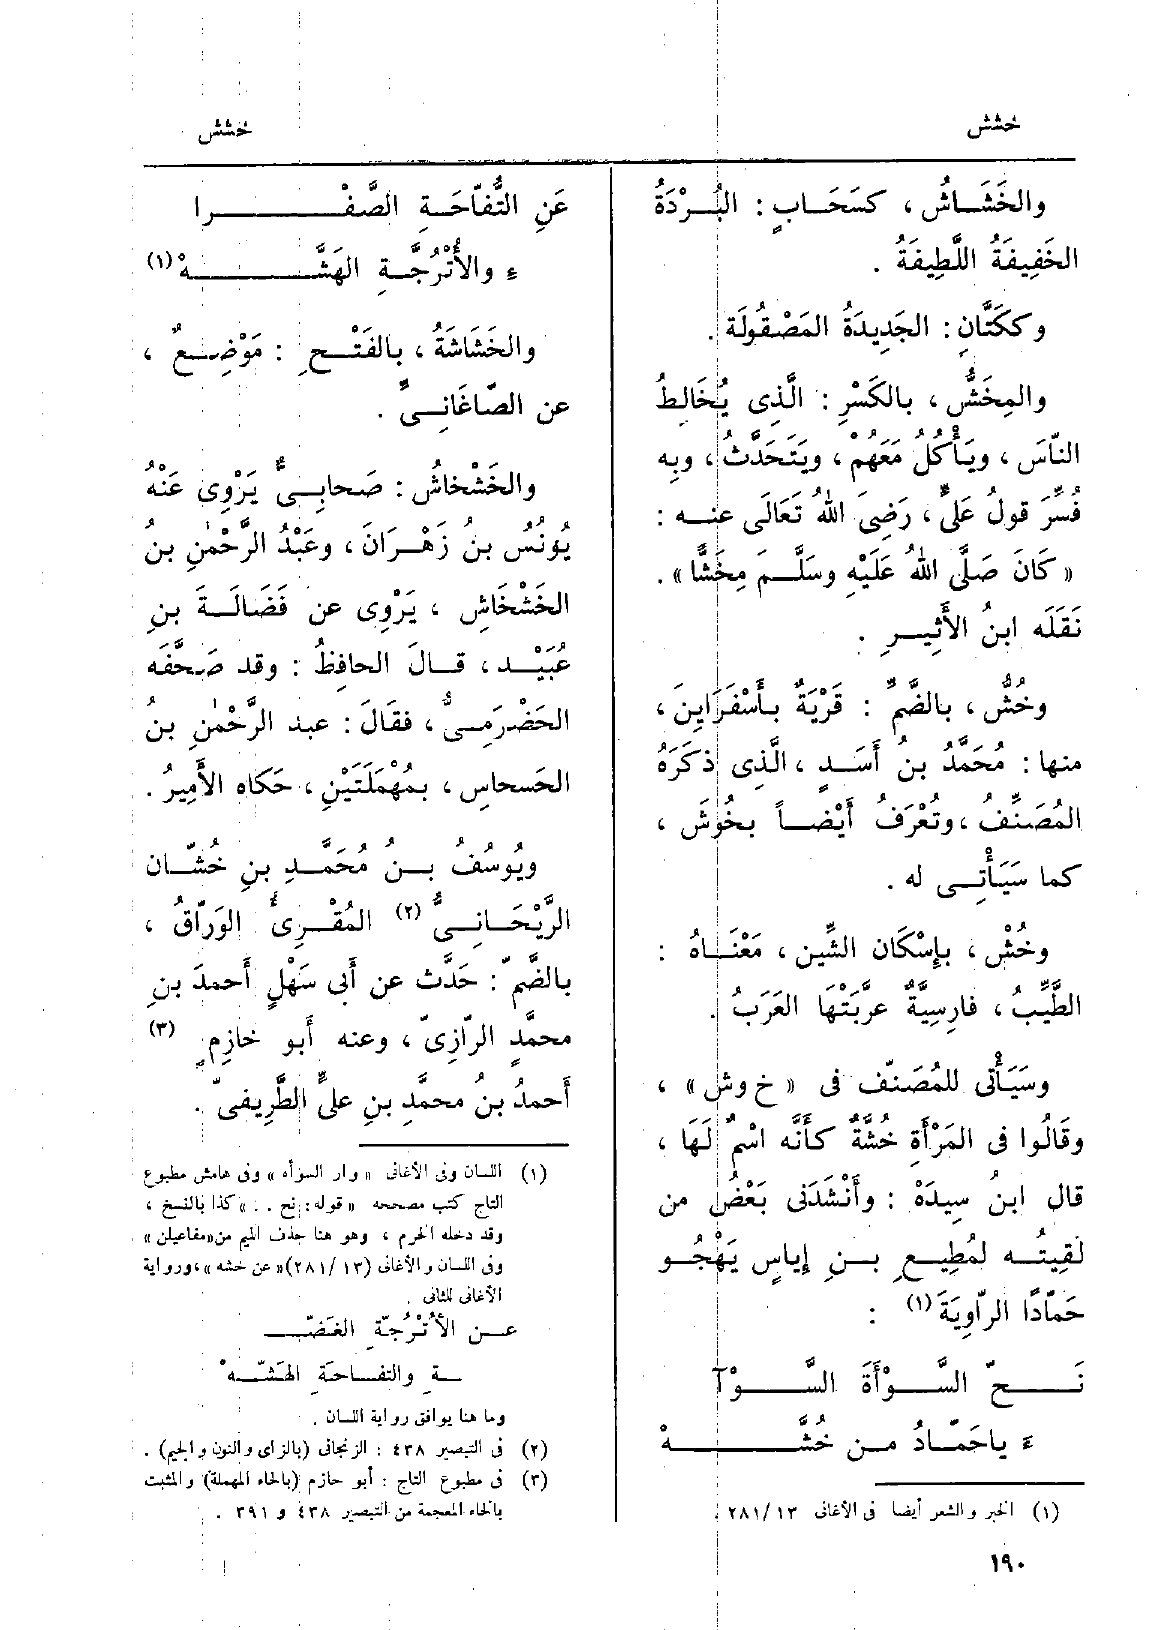 خشش
خشش
والخَشَاشُ ، كسَحَابٍ : البُرْدَةُ
الخَفِيفَةُ اللَّطِيفَةُ .
وككَتَّانٍ : الجَدِيدَةُ المَصْقُولَة .
والمِخَشُّ ، بالكَسْرِ : الَّذِى يُخَالِطُ
النّاسَ ، ويَأْكُلُ مَعَهُم ، ويَتَحَدَّثُ ، وبِه
فُسِّرَ قولُ علىٍّ ، رَضِىَ اللهُ تَعَالَى عنه :
« كَانَ صَلَّى اللهُ عَلَيْهِ وسَلَّمَ مِخَشًّا » .
نَقَلَه ابنُ الأَثِيرِ .
وخُشُّ ، بالضَّمِّ : قَرْيَةٌ بأَسْفَرَايِنَ ،
منها : مُحَمَّدُ بنُ أَسَدٍ ، الَّذِى ذكَرَهُ
المُصَنِّفُ ، وتُعْرَفُ أَيْضاً بخُوشَ ،
كما سَيَأْتِى له .
وخُشْ ، بإِسْكَان الشِّينِ ، مَعْنَاهُ :
الطَّيِّبُ ، فارِسِيَّةٌ عرَّبَتْهَا العَرَبُ .
وسَيَأْتى للمُصَنّف فى « خ وش » ،
وقَالُوا فى المَرْأَةِ خُشَّةٌ كأَنَّه اسْمٌ لَهَا ،
قال ابنُ سِيدَهْ : وأَنْشَدَنِى بَعْضُ من
لَقِيتُه لمُطِيعِ بنِ إِياسٍ يَهْجُو
حَمّادًا الرّاوِيَةَ (١) :
نَحِّ السَّوْأَةَ السَّوْآ
ءَ ياحَمّادُ من خُشَّهْ
(١) الخبر والشعر أيضا فى الأغانى ١٣/ ٢٨١ .
عَنِ التُّفّاحَةِ الصَّفْرا
ءِ والأُتْرُجَّةِ الهَشَّهْ (١)
والخَشَاشَةُ ، بالفَتْحِ : مَوْضِعٌ ،
عن الصّاغَانِىِّ .
والخَشْخاشُ : صَحابِىٌّ يَرْوِى عَنْهُ
يُونُسُ بنُ زَهْرَانَ ، وعَبْدُ الرَّحْمٰنِ بنُ
الخَشْخَاشِ ، يَرْوِى عن فَضَالَةَ بنِ
عُبَيْدٍ ، قالَ الحافِظُ : وقد صَحَّفَه
الحَضْرَمِىُّ ، فقَالَ : عبد الرَّحْمٰنِ بنُ
الحَسحاسِ ، بمُهْمَلَتَيْنِ ، حَكاه الأَمِيرُ .
ويُوسُفُ بنُ مُحَمَّدِ بنِ خُشّان
الرَّيْحَانِىُّ (٢) المُقْرِىُّ الوَرّاقُ ،
بالضَّمّ : حَدَّث عن أَبى سَهْلٍ أَحمدَ بنِ
محمَّدٍ الرّازِىّ ، وعنه أَبو خازِمٍ (٣)
أَحمدُ بن محمَّدِ بنِ علىٍّ الطَّرِيفىّ .
(١) اللسان وفى الأغانى « وار السوأه » وفى هامش مطبوع
التاج كتب مصححه « قوله : نح . . » كذا بالنسخ ،
وقد دخله الخرم ، وهو هنا حذف الميم من « مفاعيلن »
وفى اللسان والأغانى (١٣ /٢٨١) « عن خشه » ، ورواية
الأغانى للثانى .
عن الأُتْرُجّةِ الغَضّـ
ـةِ والتفاحَةِ الهَشّهْ
وما هنا يوافق رواية اللسان .
(٢) فى التبصير ٤٣٨ : الزنجانى (بالزاى والنون والجيم) .
(٣) فى مطبوع التاج : أبو حازم (بالحاء المهملة) والمثبت
بالخاء المعجمة من التبصير ٤٣٨ و ٣٩١ .
١٩٠